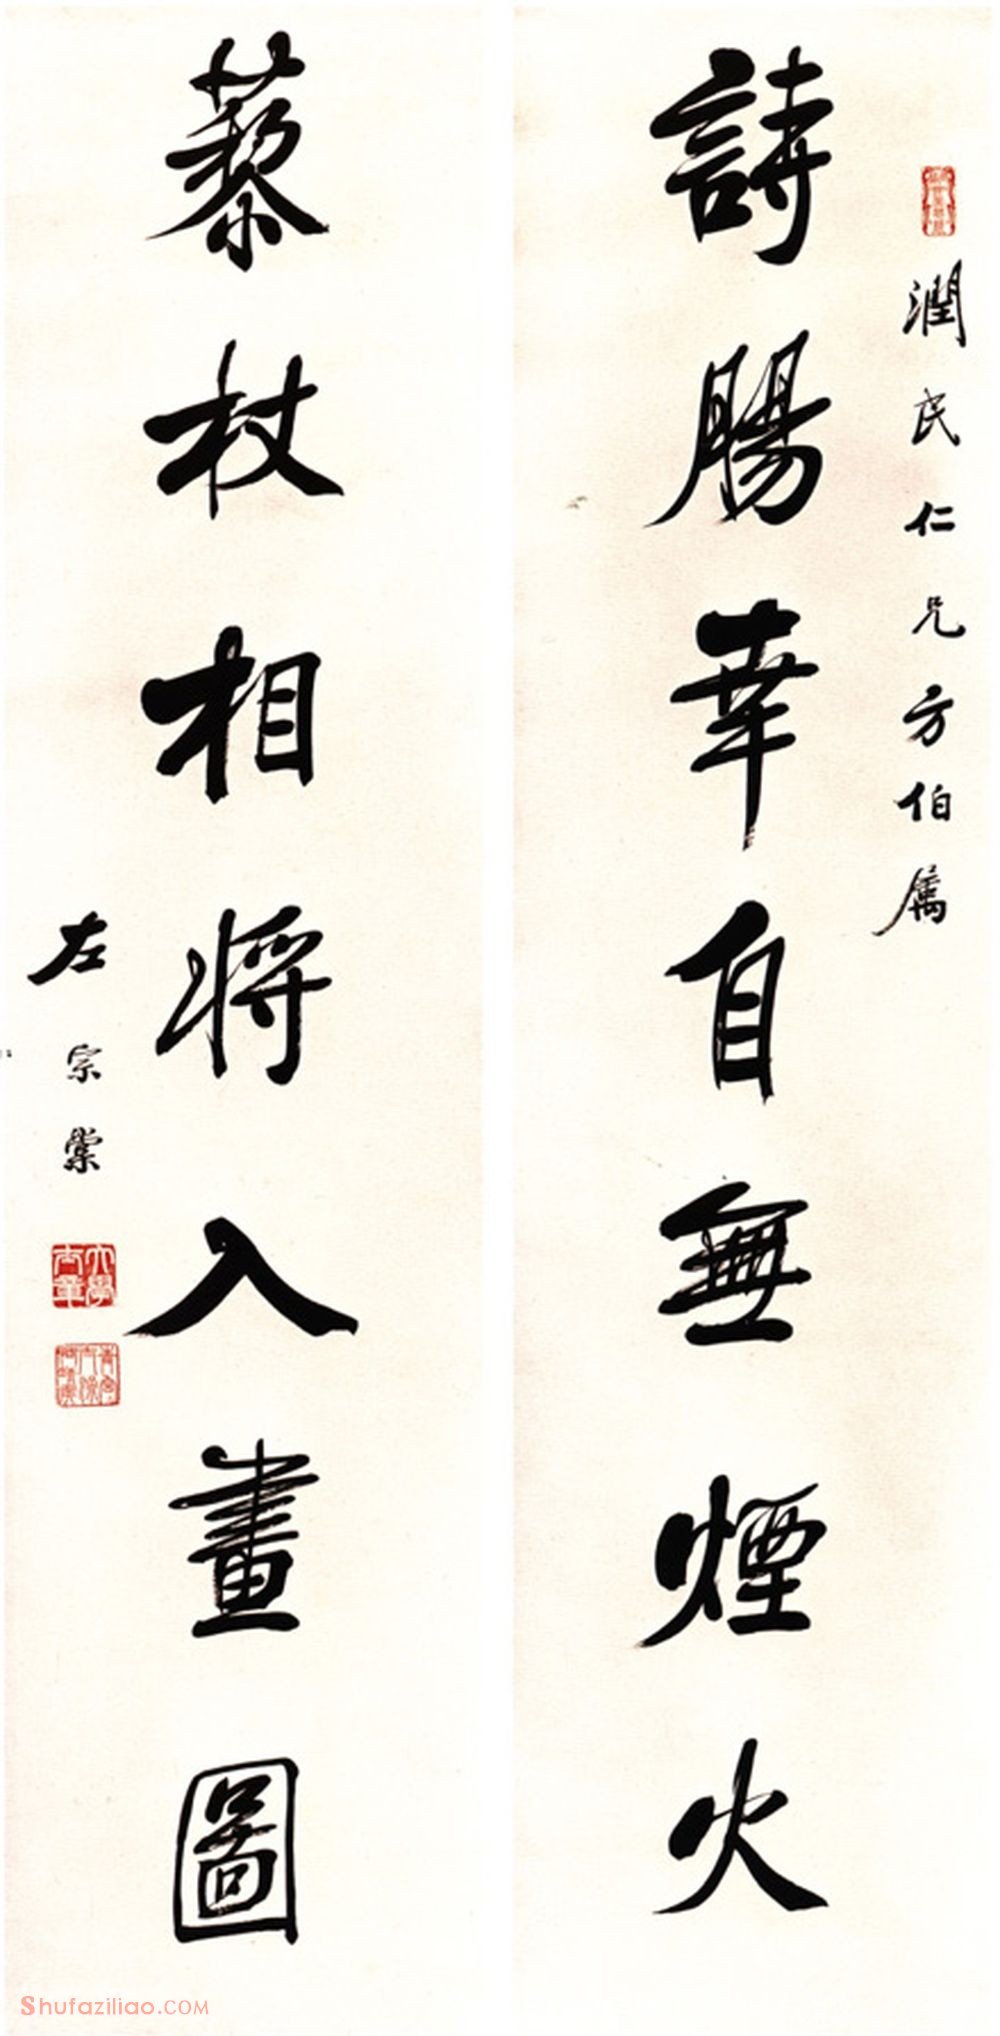 潤民仁兄方伯屬
詩腸幸自無煙火
藜杖相將入畫圖
左宗棠
大學士章
Shufaziliao.COM